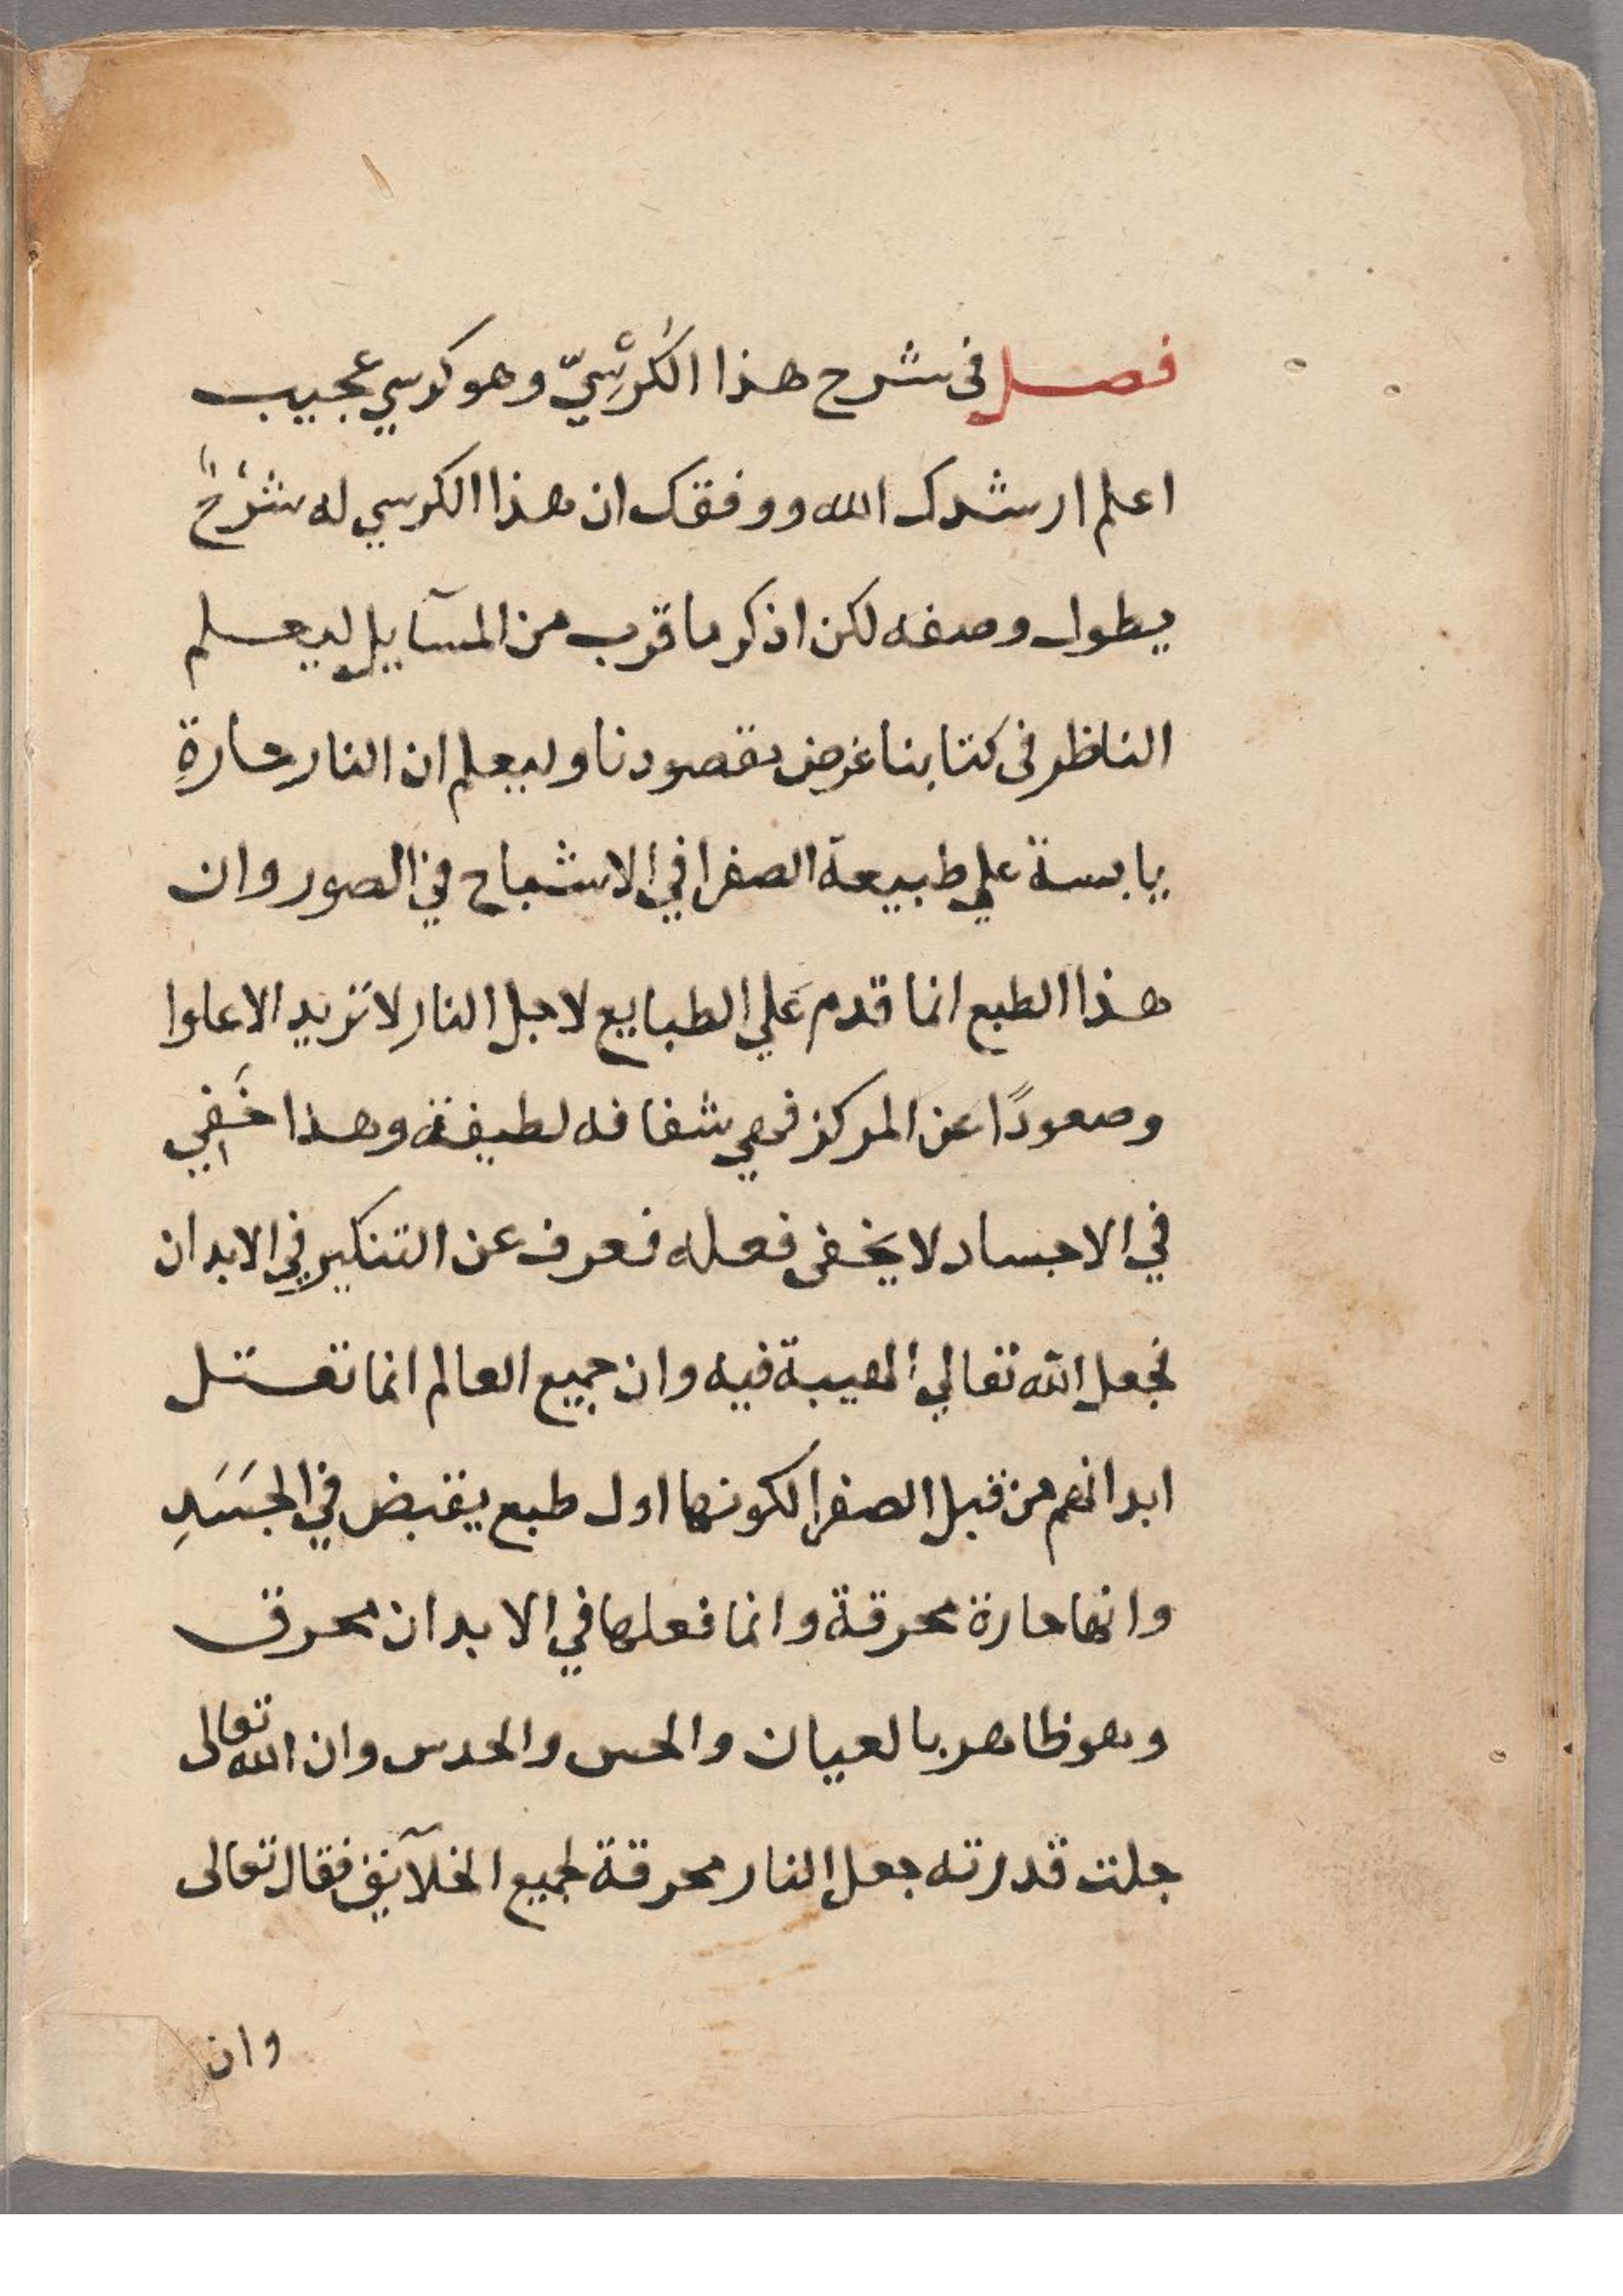 فصل في شرح هذا الكُرْسِيّ وهو كرسي عجيب
اعلم ارشدك الله ووفقك ان هذا الكرسي له شَرْحٌ
يطول وصفه لكن اذكر ما قرب من المسآيل ليعلم
الناظر في كتابنا غرض مقصودنا وليعلم ان النار حارةِ
يابسة علي طبيعة الصفرا في الاشباح في الصور وان
هذا الطبع انما قدم عَلي الطبايع لاجل النارِ لا تزيد الا علوا
وصعودًا عن المركز فهي شفافه لطيفة وهذا خَفِي
في الاجساد لا يخفى فعله فعرف عن التنكير في الابدان
فجعل الله تعالي الهيبة فيه وان جميع العالم انما تعتل
ابدانهم من قبل الصفرا لكونها اول طبع يقبض في الجسَدِ
وانها حارة محرقة وانما فعلها في الابدان محرق
وهو ظاهر بالعيان والحس والحدس وان الله تعالى
جلت قدرته جعل النار محرقة لجميع الخلآيق فقال تعالى
وان